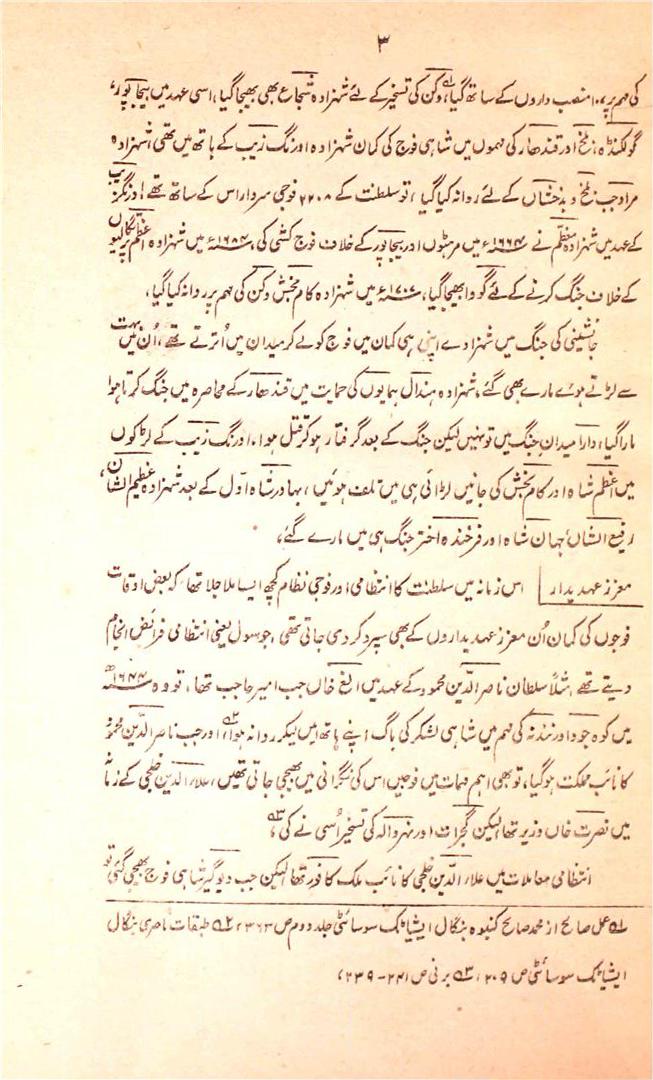 ۳
کی مہم پر ۱۰۰ منصب داروں کے ساتھ گیا، دکن کی تسخیر کے لئے شہزادہ شجاع بھی بھیجا گیا، اسی عہد میں بیجاپور،
گولکنڈہ، بلخ اور قندھار کی مہموں میں شاہی فوج کی کمان شہزادہ اورنگ زیب کے ہاتھ میں تھی، شہزادہ
مراد جب بلخ و بدخشاں کے لئے روانہ کیا گیا، تو سلطنت کے ۲۲۰۸ فوجی سردار اس کے ساتھ تھے، اورنگزیب
کے عہد میں شہزادہ معظم نے ۱۶۶۴ء میں مرہٹوں اور بیجاپور کے خلاف فوج کشی کی، ۱۶۸۴ء میں شہزادہ اعظم پرتگالیوں
کے خلاف جنگ کرنے کے لئے گووا بھیجا گیا، ۱۷۰۷ء میں شہزادہ کام بخش دکن کی مہم پر روانہ کیا گیا،
جانشینی کی جنگ میں شہزادے اپنی ہی کمان میں فوج کو لے کر میدان میں اُترتے تھے، اُن میں بہت
سے لڑتے ہوئے مارے بھی گئے، شہزادہ ہندال ہمایوں کی حمایت میں قندھار کے محاصرہ میں جنگ کرتا ہوا
مارا گیا، دارا میدان جنگ میں تو نہیں لیکن جنگ کے بعد گرفتار ہو کر قتل ہوا، اورنگ زیب کے لڑکوں
میں اعظم شاہ اور کام بخش کی جانیں لڑائی ہی میں تلف ہوئیں، بہادر شاہ اول کے بعد شہزادہ عظیم الشان،
رفیع الشان، جہان شاہ اور فرخندہ اختر جنگ ہی میں مارے گئے،
معزز عہدیدار اس زمانہ میں سلطنت کا انتظامی اور فوجی نظام کچھ ایسا ملا جلا تھا کہ بعض اوقات
فوجوں کی کمان اُن معزز عہدیداروں کے بھی سپرد کر دی جاتی تھی، جو سول یعنی انتظامی فرائض انجام
دیتے تھے، مثلاً سلطان ناصر الدین محمود کے عہد میں الغ خاں جب امیر حاجب تھا، تو وہ ۶۴۴ھ
میں کوہ جود اور نندنہ کی مہم میں شاہی لشکر کی باگ اپنے ہاتھ میں لیکر روانہ ہوا، اور جب ناصر الدین محمود
کا نائب مملکت ہوگیا، تو بھی اہم مہمات میں فوجیں اس کی نگرانی میں بھیجی جاتی تھیں، علاء الدین خلجی کے زمانہ
میں نصرت خاں وزیر تھا لیکن گجرات اور نہروالہ کی تسخیر اُسی نے کی،
انتظامی معاملات میں علاء الدین خلجی کا نائب ملک کافور تھا لیکن جب دیوگیر شاہی فوج بھیجی گئی تو
۱؎ عمل صالح از محمد صالح کنبوہ بنگال ایشیاٹک سوسائٹی جلد دوم ص ۳۶۳، ۲؎ طبقات ناصری بنگال
ایشیاٹک سوسائٹی ص ۲۰۹، ۳؎ برنی ص ۲۴۱-۲۳۹،